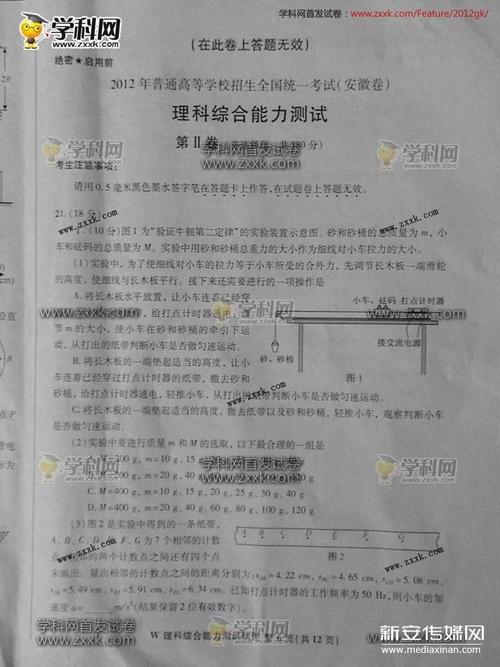 学科网
学科网首发试卷：www.zxxk.com/Feature/2012gk/
(在此卷上答题无效)
绝密★启用前
2012年普通高等学校招生全国统一考试(安徽卷)
理科综合能力测试
第Ⅱ卷
考生注意事项：
请用0.5毫米黑色墨水签字笔在答题卡上作答，在试题卷上答题无效。
21.(18分)
(10分)图1为"验证牛顿第二定律"的实验装置示意图。砂和砂桶的总质量为m，小
车和砝码的总质量为M。实验中用砂和砂桶总重力的大小作为细线对小车拉力的大小。
(1)实验中，为了使细线对小车的拉力等于小车所受的合外力，先调节长木板一端滑轮
的高度，使细线与长木板平行。接下来还需要进行的一项操作是
A.将长木板水平放置，让小车连着已经穿
带，给打点计时器通电，
节m的大小，使小车在砂和砂桶的牵引下运
动，从打出的纸带判断小车是否做匀速运动。
B.将长木板的一端垫起适当的高度，让小
车连着已经穿过打点计时器的纸带，撤去砂和
砂桶，给打点计时器通电，轻推小车，从打出的纸带判断小车是否做匀速运动。
C.将长木板的一端垫起适当的高度，撤去纸带以及砂和砂桶，轻推小车，观察判断小车
是否做匀速运动。
小车、砝码 打点计时器
接交流电源
砂、砂桶
图1
(2)实验中要进行质量m和M的选取，以下最合理的一组是
M=200 g，m=10 g、15
m=20 g、40
C. M=400 g，m=10 g、15 g、20 g、25 g、30 g、40 g
D. M=400 g，m=20 g、40 g、60 g、80 g、100 g、120 g
(3)图2是实验中得到的一条纸带，
A、B、C、D、E、F、G为7个相邻的计数
点，相邻的两个计数点之间还有四个点
图2
未画出。量出相邻的计数点之间的距离分别为：sAB=4.22 cm、sBC=4.65 cm、sCD=5.08 cm、
sDE=5.49 cm、sEF=5.91 cm、sFG=6.34 cm。已知打点计时器的工作频率为50 Hz，则小车的加
速度a= m/s²(结果保留2位有效数字)。
W 理科综合能力测试试卷 第 页(共12页)
学科网首发试卷
www.zxxk.com
新安传媒网
www.mediaxinan.com